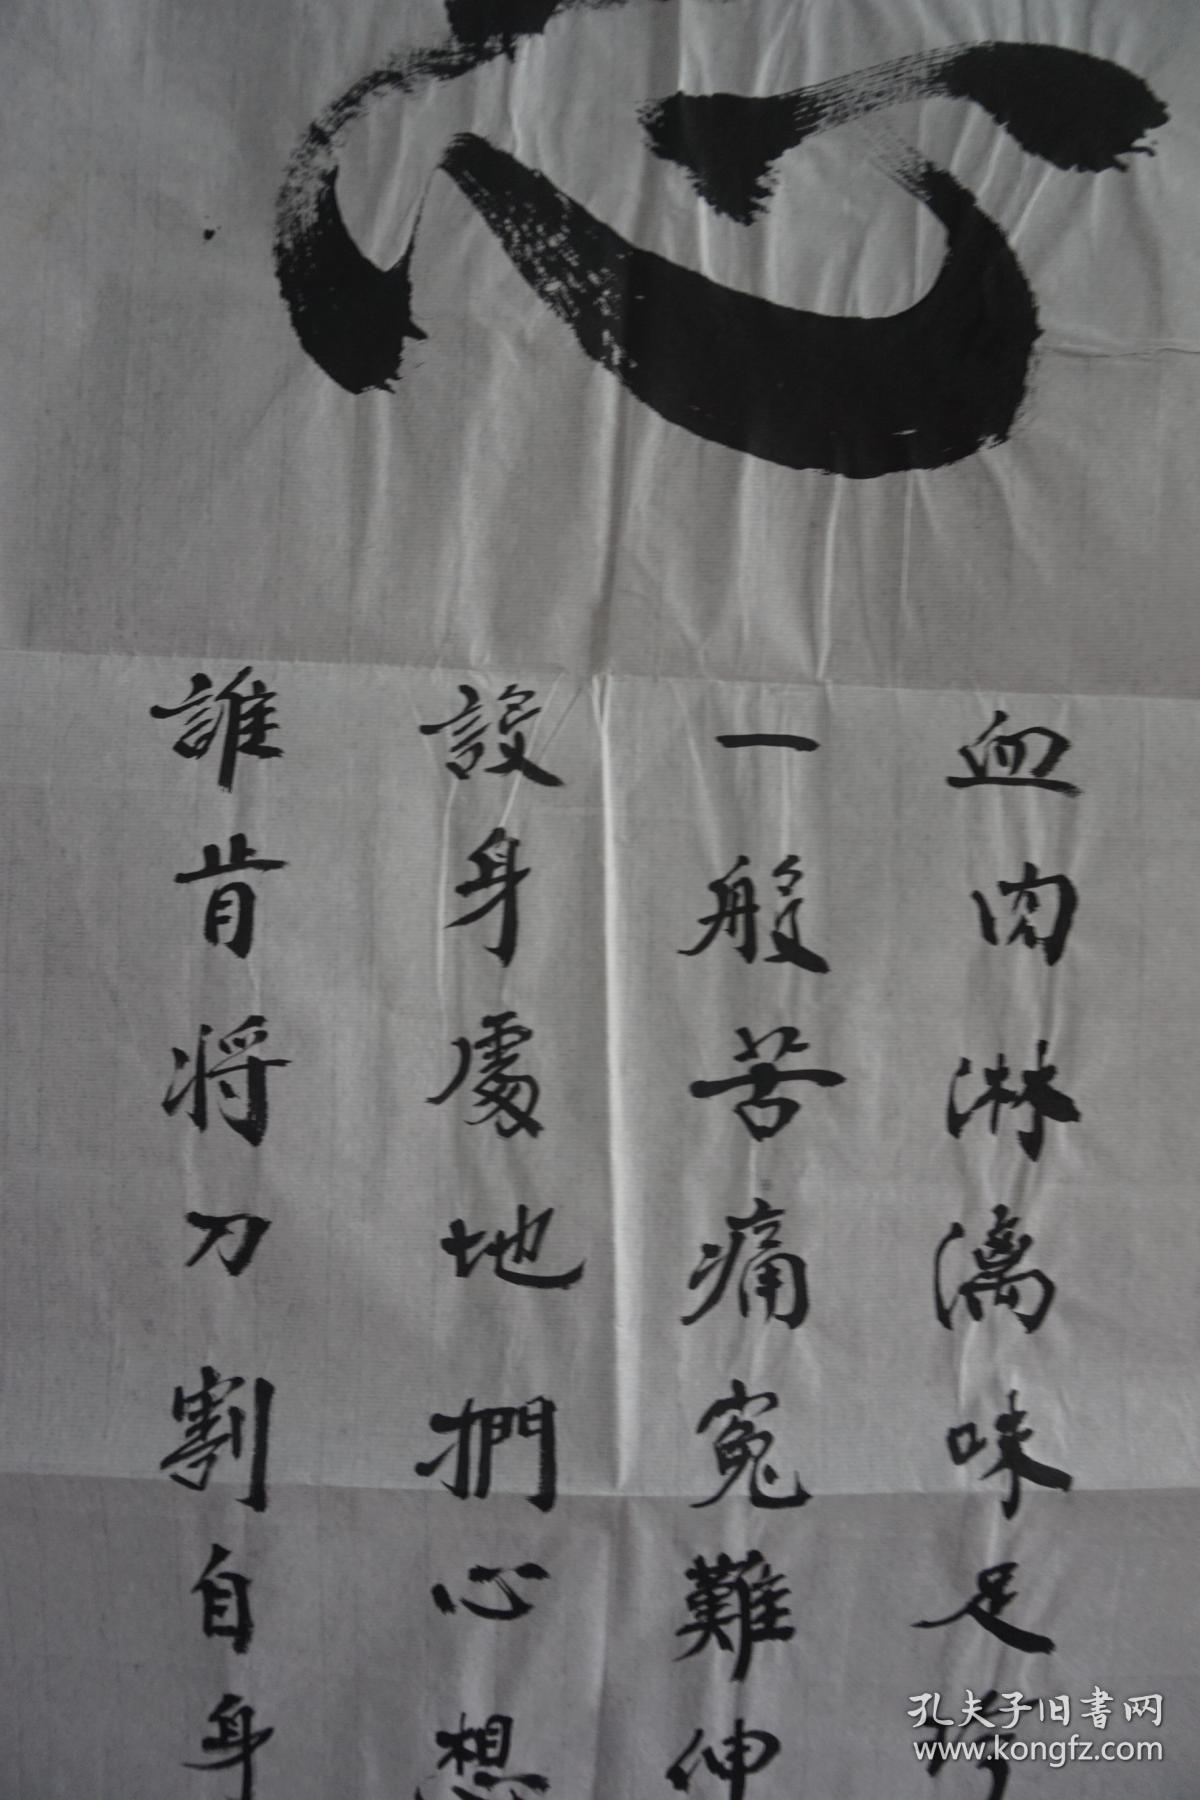 心
血肉淋漓味足珍
一般苦痛冤難伸
設身處地捫心想
誰肯將刀割自身
孔夫子旧书网
www.kongfz.com